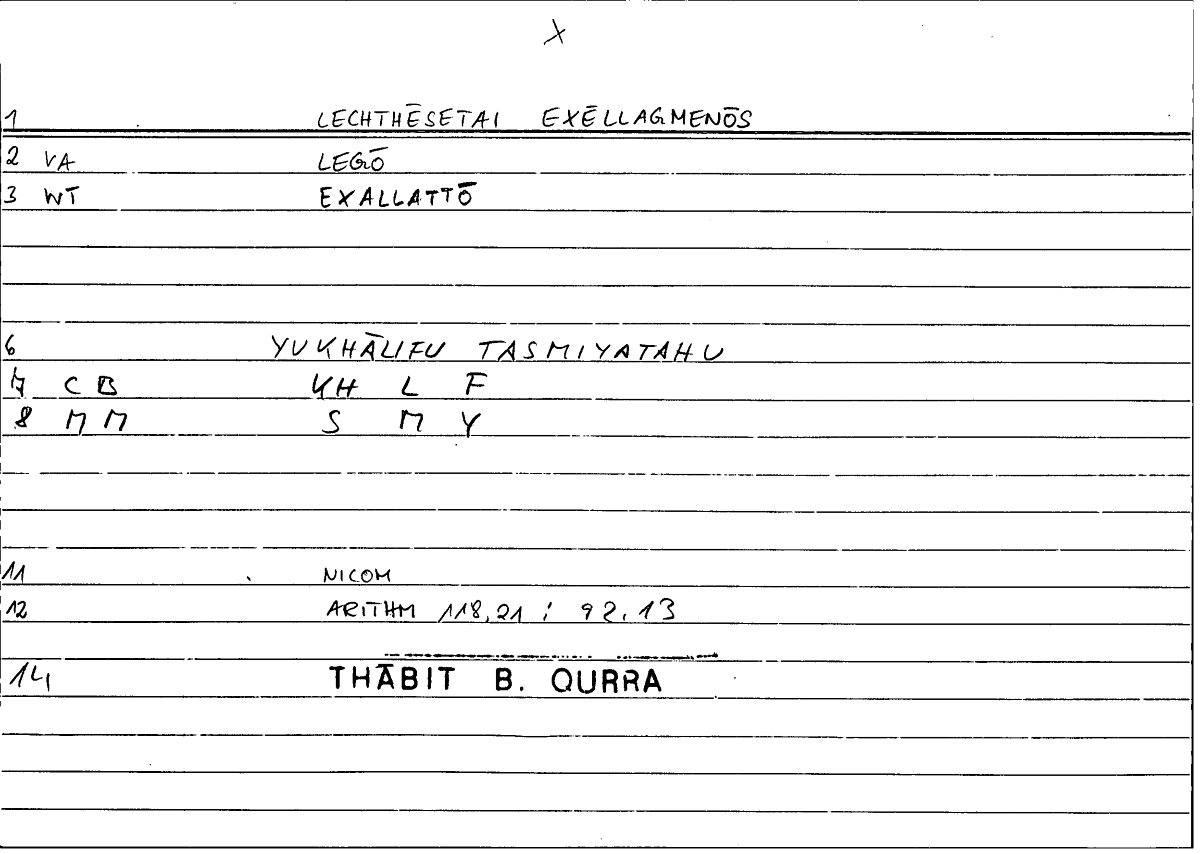 X
1 LECHTHĒSETAI EXĒLLAGMENŌS
2 VA LEGŌ
3 WT EXALLATTŌ
6 YUKHĀLIFU TASMIYATAHU
7 CB KH L F
8 MM S M Y
11 NICOM
12 ARITHM 118,21 : 92.13
14 THĀBIT B. QURRA